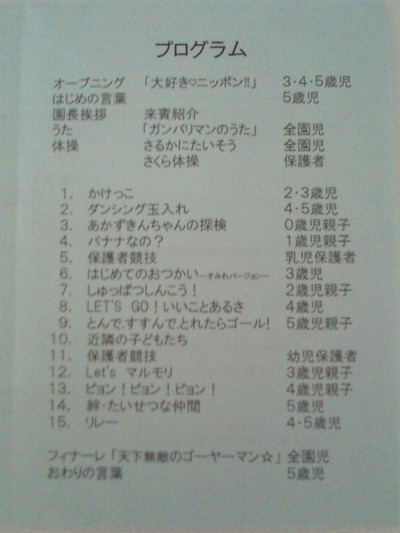 プログラム
オープニング 「大好き♡ニッポン!!」 3・4・5歳児
はじめの言葉 5歳児
園長挨拶 来賓紹介
うた 「ガンバリマンのうた」 全園児
体操 さるかにたいそう 全園児
さくら体操 保護者
1. かけっこ 2・3歳児
2. ダンシング玉入れ 4・5歳児
3. あかずきんちゃんの探検 0歳児親子
4. バナナなの? 1歳児親子
5. 保護者競技 乳児保護者
6. はじめてのおつかい~すみれバージョン~ 3歳児
7. しゅっぱつしんこう! 2歳児親子
8. LET'S GO!いいことあるさ 4歳児
9. とんで,すすんで,とれたらゴール! 5歳児親子
10. 近隣の子どもたち
11. 保護者競技 幼児保護者
12. Let's マルモリ 3歳児親子
13. ピョン!ピョン!ピョン! 4歳児親子
14. 絆・たいせつな仲間 5歳児
15. リレー 4・5歳児
フィナーレ 「天下無敵のゴーヤーマン☆」 全園児
おわりの言葉 5歳児